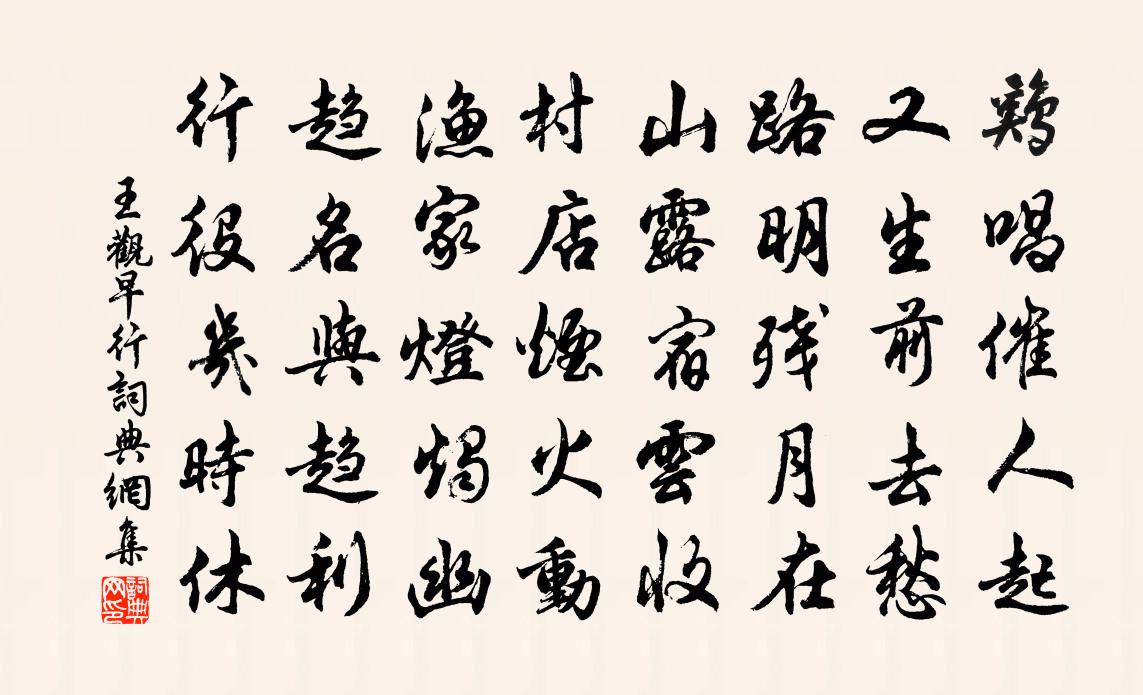 鷄唱催人起
又生前去愁
路明残月在
山露宿雲收
村店煙火動
漁家燈燭幽
趋名與趋利
行役幾時休
王觀早行詞典網集
詞典网印